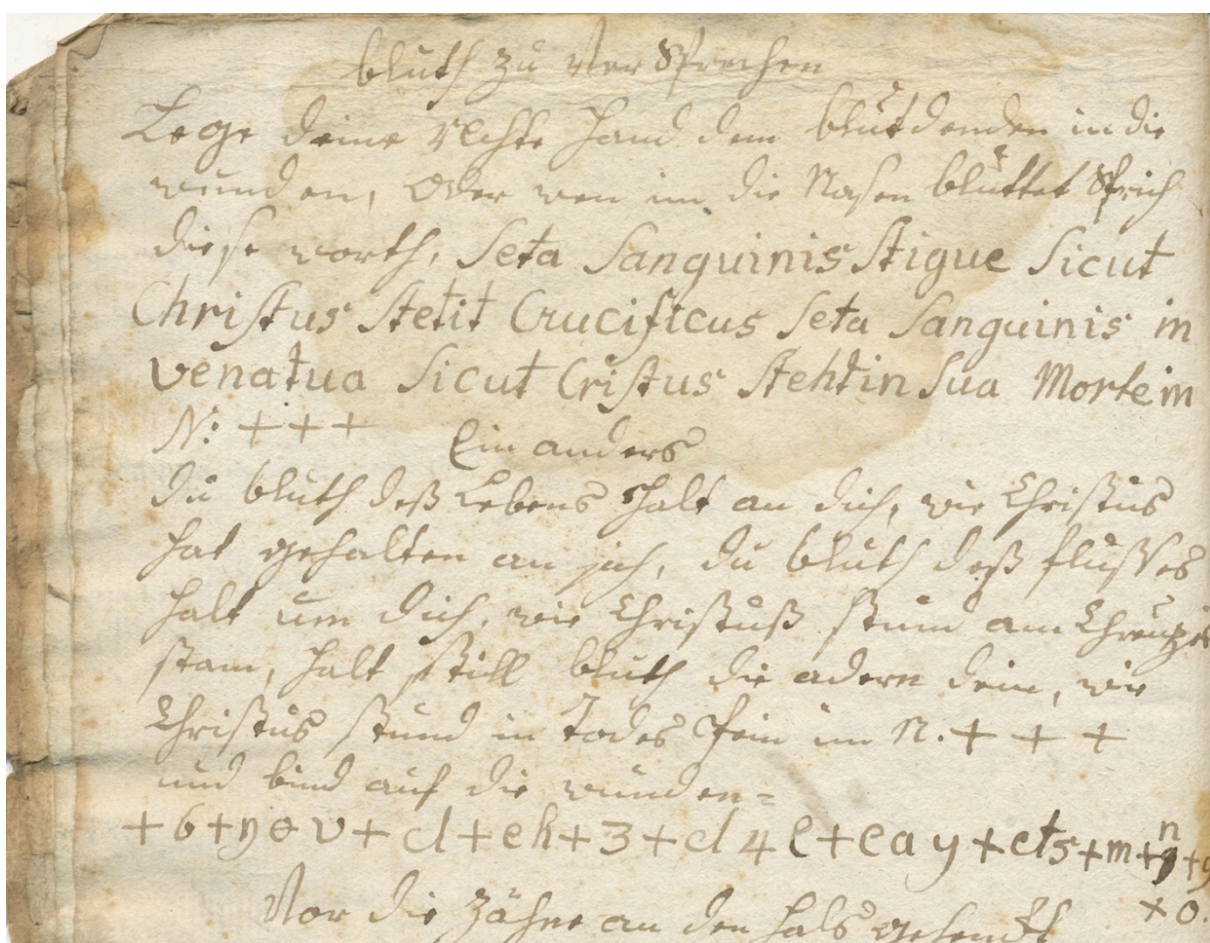 bluth zu Ver Sprechen
Lege deine Rechte Hand dem blutdenden in die
wunden, Oder wen im die Nasen bluttet Sprich
diese worth, Seta Sanguinis Stigue Sicut
Christus Stetit Crucificus Seta Sanguinis in
venatua Sicut Cristus Stehtin Sua Morte in
N: + + +
Ein anders
du bluth deß Lebens Halt an dich, wie Christus
hat gehalten an sich, du bluth deß flusses
halt um dich, wie Christuß stund am
stam, halt still bluth die adern dein, wie
Christus stund in Todes Pein im N. + + +
und bind auf die wunden=
+6+yov+cl+eh+3+cl4l+eay+cts+m+
+o.
Vor die Zähne an den Hals gehenckt